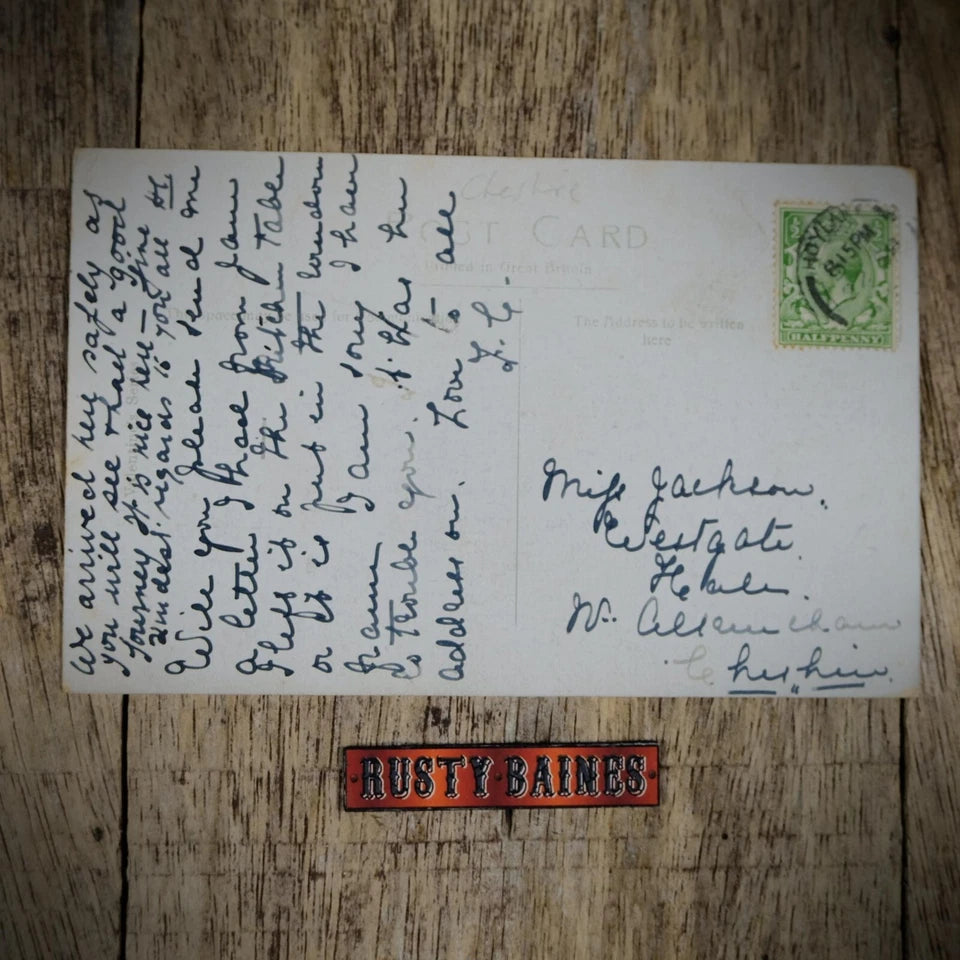 Cheshire
POST CARD
Printed in Great Britain
This space may be used for
The Address to be written
here
HOYLAKE
8.15PM
HALFPENNY
We arrived here safely as
you will see & had a good
Journey It is nice here – fine
Kindest regards to you all H.
Will you please send me
a letter I have from Jam
I left it on the Kitchen Table
or it is put in the window
frame I am sorry I have
to trouble you. it has her
address on. Love to all
Miss Jackson.
Westgate
Hale.
Nr. Altrincham
Cheshire.
RUSTY BAINES